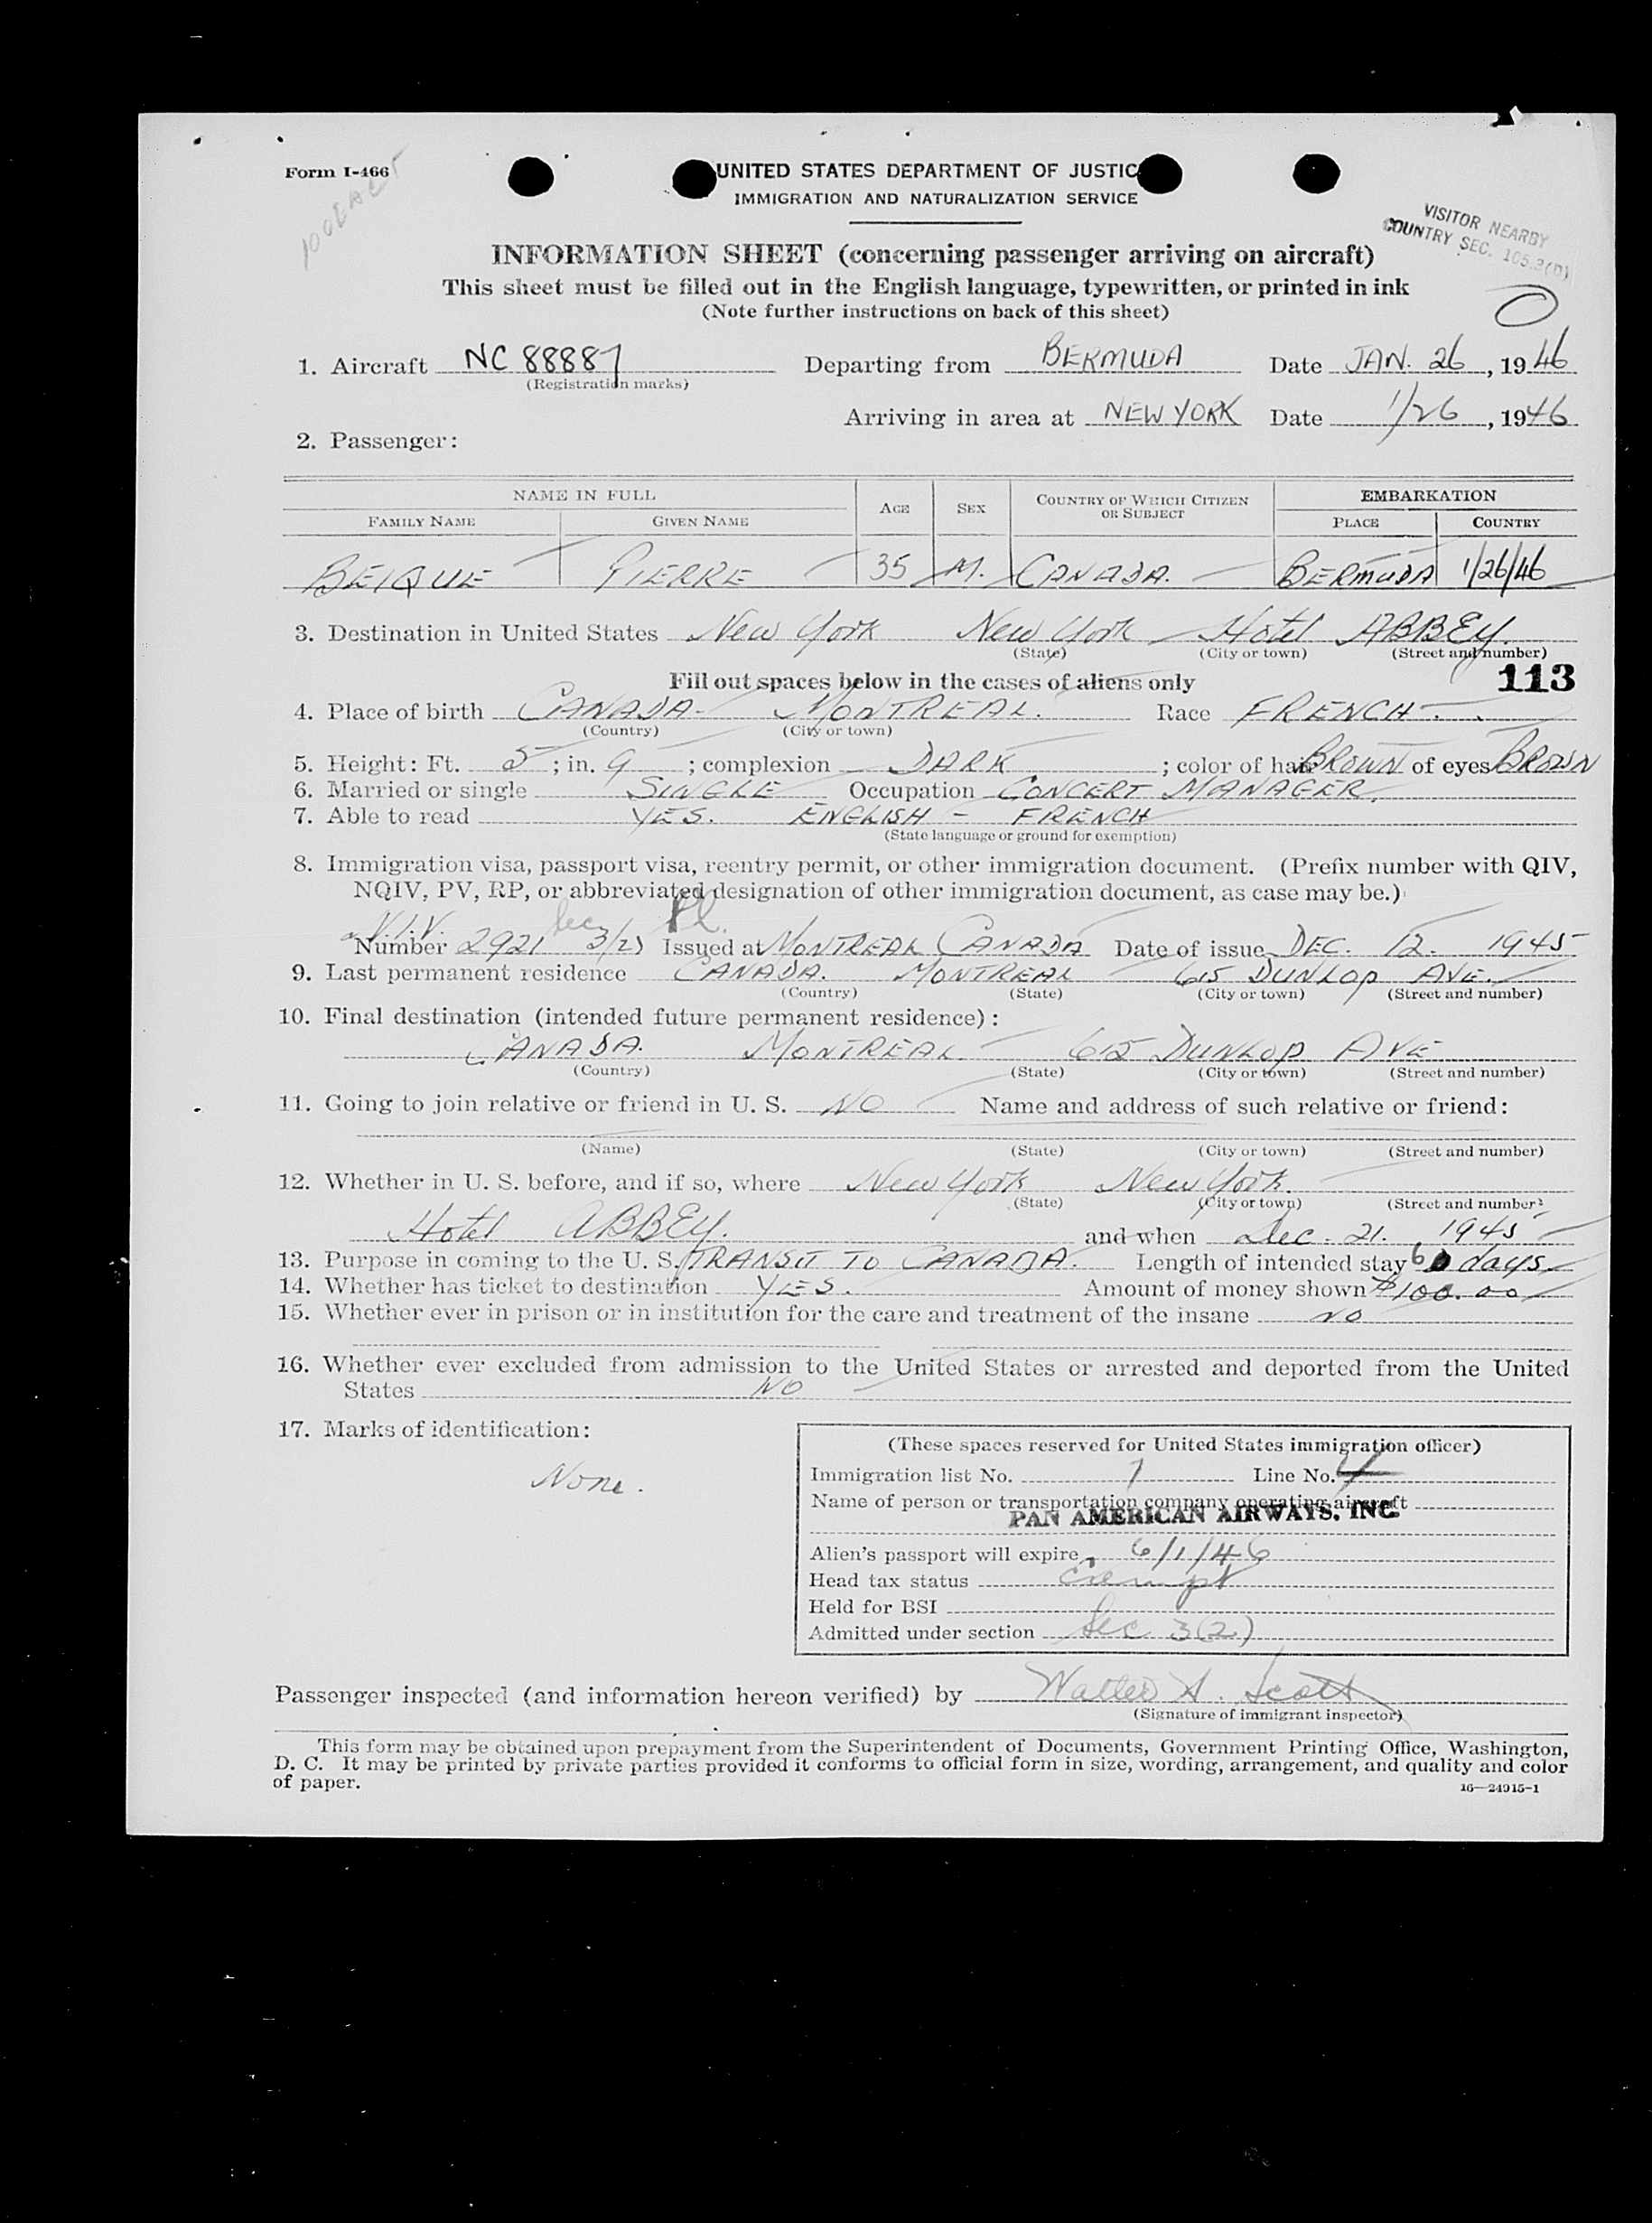 Form I-466
UNITED STATES DEPARTMENT OF JUSTIC
IMMIGRATION AND NATURALIZATION SERVICE
VISITOR NEARBY
COUNTRY SEC. 105.3(D)
INFORMATION SHEET (concerning passenger arriving on aircraft)
This sheet must be filled out in the English language, typewritten, or printed in ink
(Note further instructions on back of this sheet)
1. Aircraft NC 88887 Departing from BERMUDA Date JAN. 26, 1946
(Registration marks)
Arriving in area at NEW YORK Date 1/26, 1946
2. Passenger:
NAME IN FULL AGE SEX COUNTRY OF WHICH CITIZEN OR SUBJECT EMBARKATION
FAMILY NAME GIVEN NAME PLACE COUNTRY
BEIQUE PIERRE 35 M. CANADA. BERMUDA 1/26/46
3. Destination in United States New York New York Hotel ABBEY.
(State) (City or town) (Street and number)
Fill out spaces below in the cases of aliens only 113
4. Place of birth CANADA- MONTREAL. Race FRENCH.
(Country) (City or town)
5. Height: Ft. 5; in. 9; complexion DARK; color of hair BROWN of eyes BROWN
6. Married or single SINGLE Occupation CONCERT MANAGER.
7. Able to read YES. ENGLISH - FRENCH
(State language or ground for exemption)
8. Immigration visa, passport visa, reentry permit, or other immigration document. (Prefix number with QIV,
NQIV, PV, RP, or abbreviated designation of other immigration document, as case may be.)
N.I.V. Sec
Number 2921 3(2) Issued at MONTREAL CANADA Date of issue DEC. 12. 1945
9. Last permanent residence CANADA. MONTREAL 615 DUNLOP AVE.
(Country) (State) (City or town) (Street and number)
10. Final destination (intended future permanent residence):
CANADA. MONTREAL. 615 DUNLOP AVE
(Country) (State) (City or town) (Street and number)
11. Going to join relative or friend in U. S. NO Name and address of such relative or friend:
(Name) (State) (City or town) (Street and number)
12. Whether in U. S. before, and if so, where New York New York.
(State) (City or town) (Street and number)
Hotel ABBEY. and when Dec. 21. 1945
13. Purpose in coming to the U. S. TRANSIT TO CANADA. Length of intended stay 60 days
14. Whether has ticket to destination YES. Amount of money shown $100.00
15. Whether ever in prison or in institution for the care and treatment of the insane NO
16. Whether ever excluded from admission to the United States or arrested and deported from the United
States NO
17. Marks of identification:
None.
(These spaces reserved for United States immigration officer)
Immigration list No. 1 Line No. 4
Name of person or transportation company operating aircraft
PAN AMERICAN AIRWAYS, INC.
Alien's passport will expire 6/1/46
Head tax status Exempt
Held for BSI
Admitted under section Sec 3(2)
Passenger inspected (and information hereon verified) by Walter A. Scott
(Signature of immigrant inspector)
This form may be obtained upon prepayment from the Superintendent of Documents, Government Printing Office, Washington,
D. C. It may be printed by private parties provided it conforms to official form in size, wording, arrangement, and quality and color
of paper.
16—24915-1